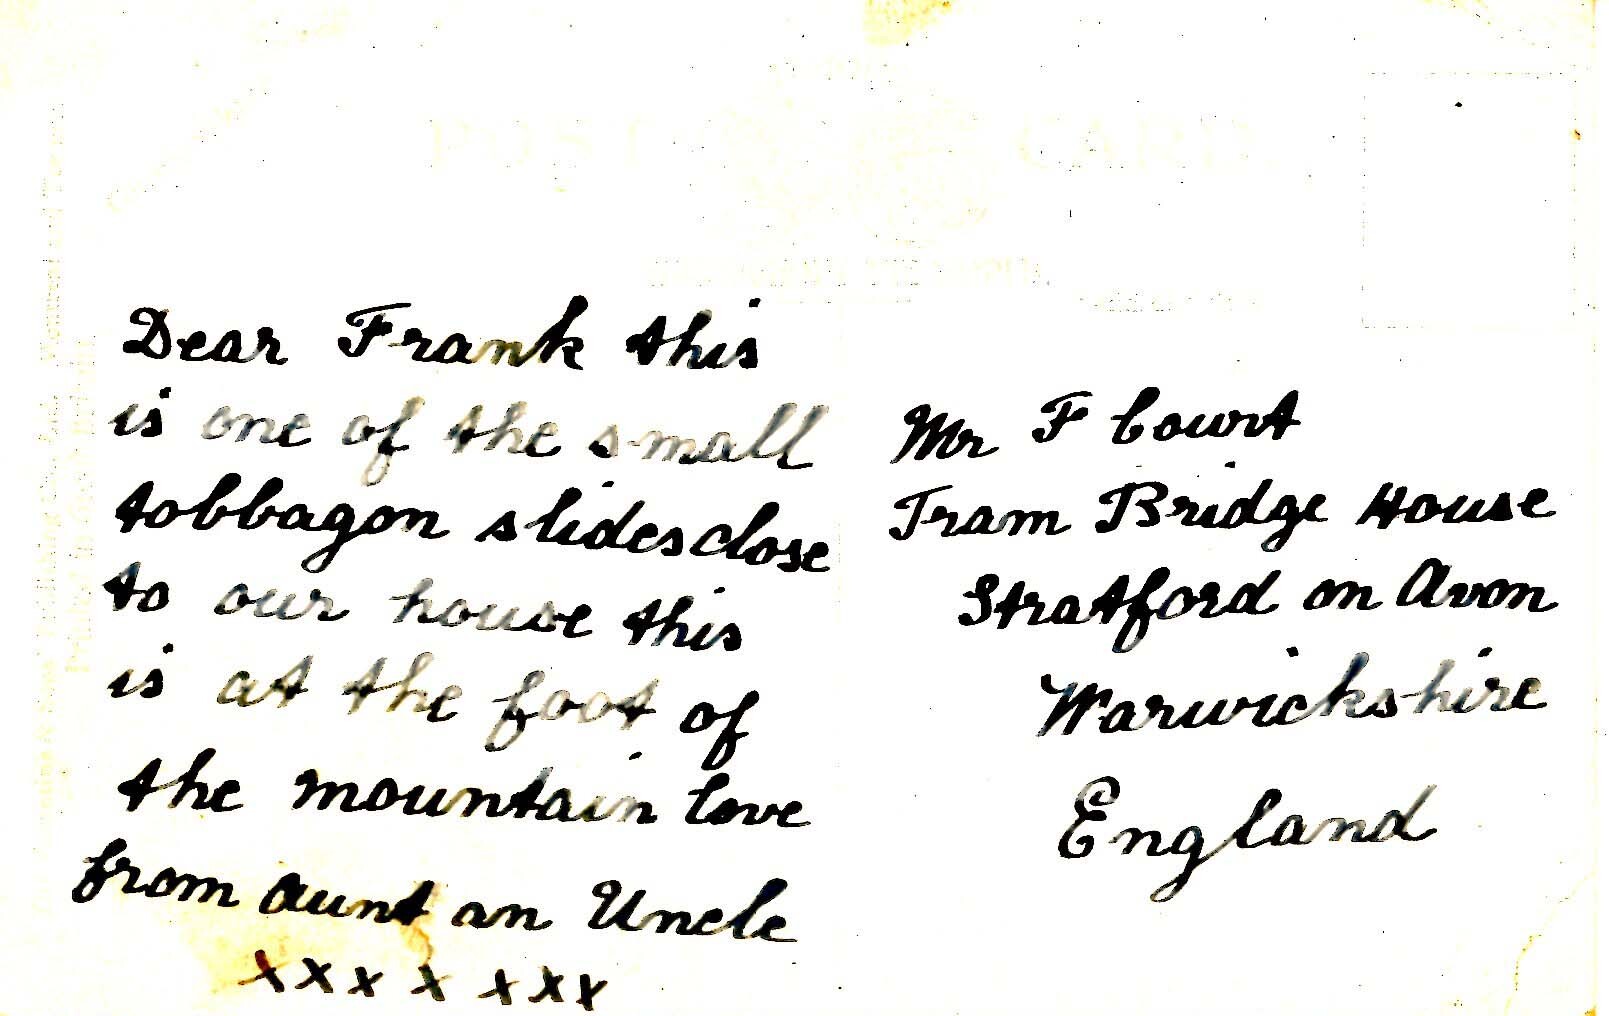 POST CARD
Dear Frank this
is one of the small
tobbagon slides close
to our house this
is at the foot of
the mountain love
from Aunt an Uncle
x x x x x x x
Mr F Court
Tram Bridge House
Stratford on Avon
Warwickshire
England